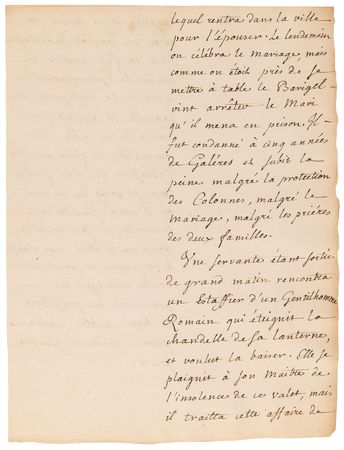 lequel rentra dans la ville
pour l'épouser. Le lendemain
on célébra le mariage, mais
comme on étoit près de se
mettre à table le Barigel
vint arrêter le Mari
qu'il mena en prison. Il
fut condamné à cinq années
de Galéres et subit la
peine malgré la protection
des Colonnes, malgré le
mariage, malgré les priéres
des deux familles.
Une servante étant sortie
de grand matin rencontra
un Estaffier d'un Gentilhomme
Romain qui éteignit la
chandelle de sa lanterne,
et voulut la baiser. Elle se
plaignit à son Maitre de
l'insolence de ce valet, mais
il traitta cette affaire de